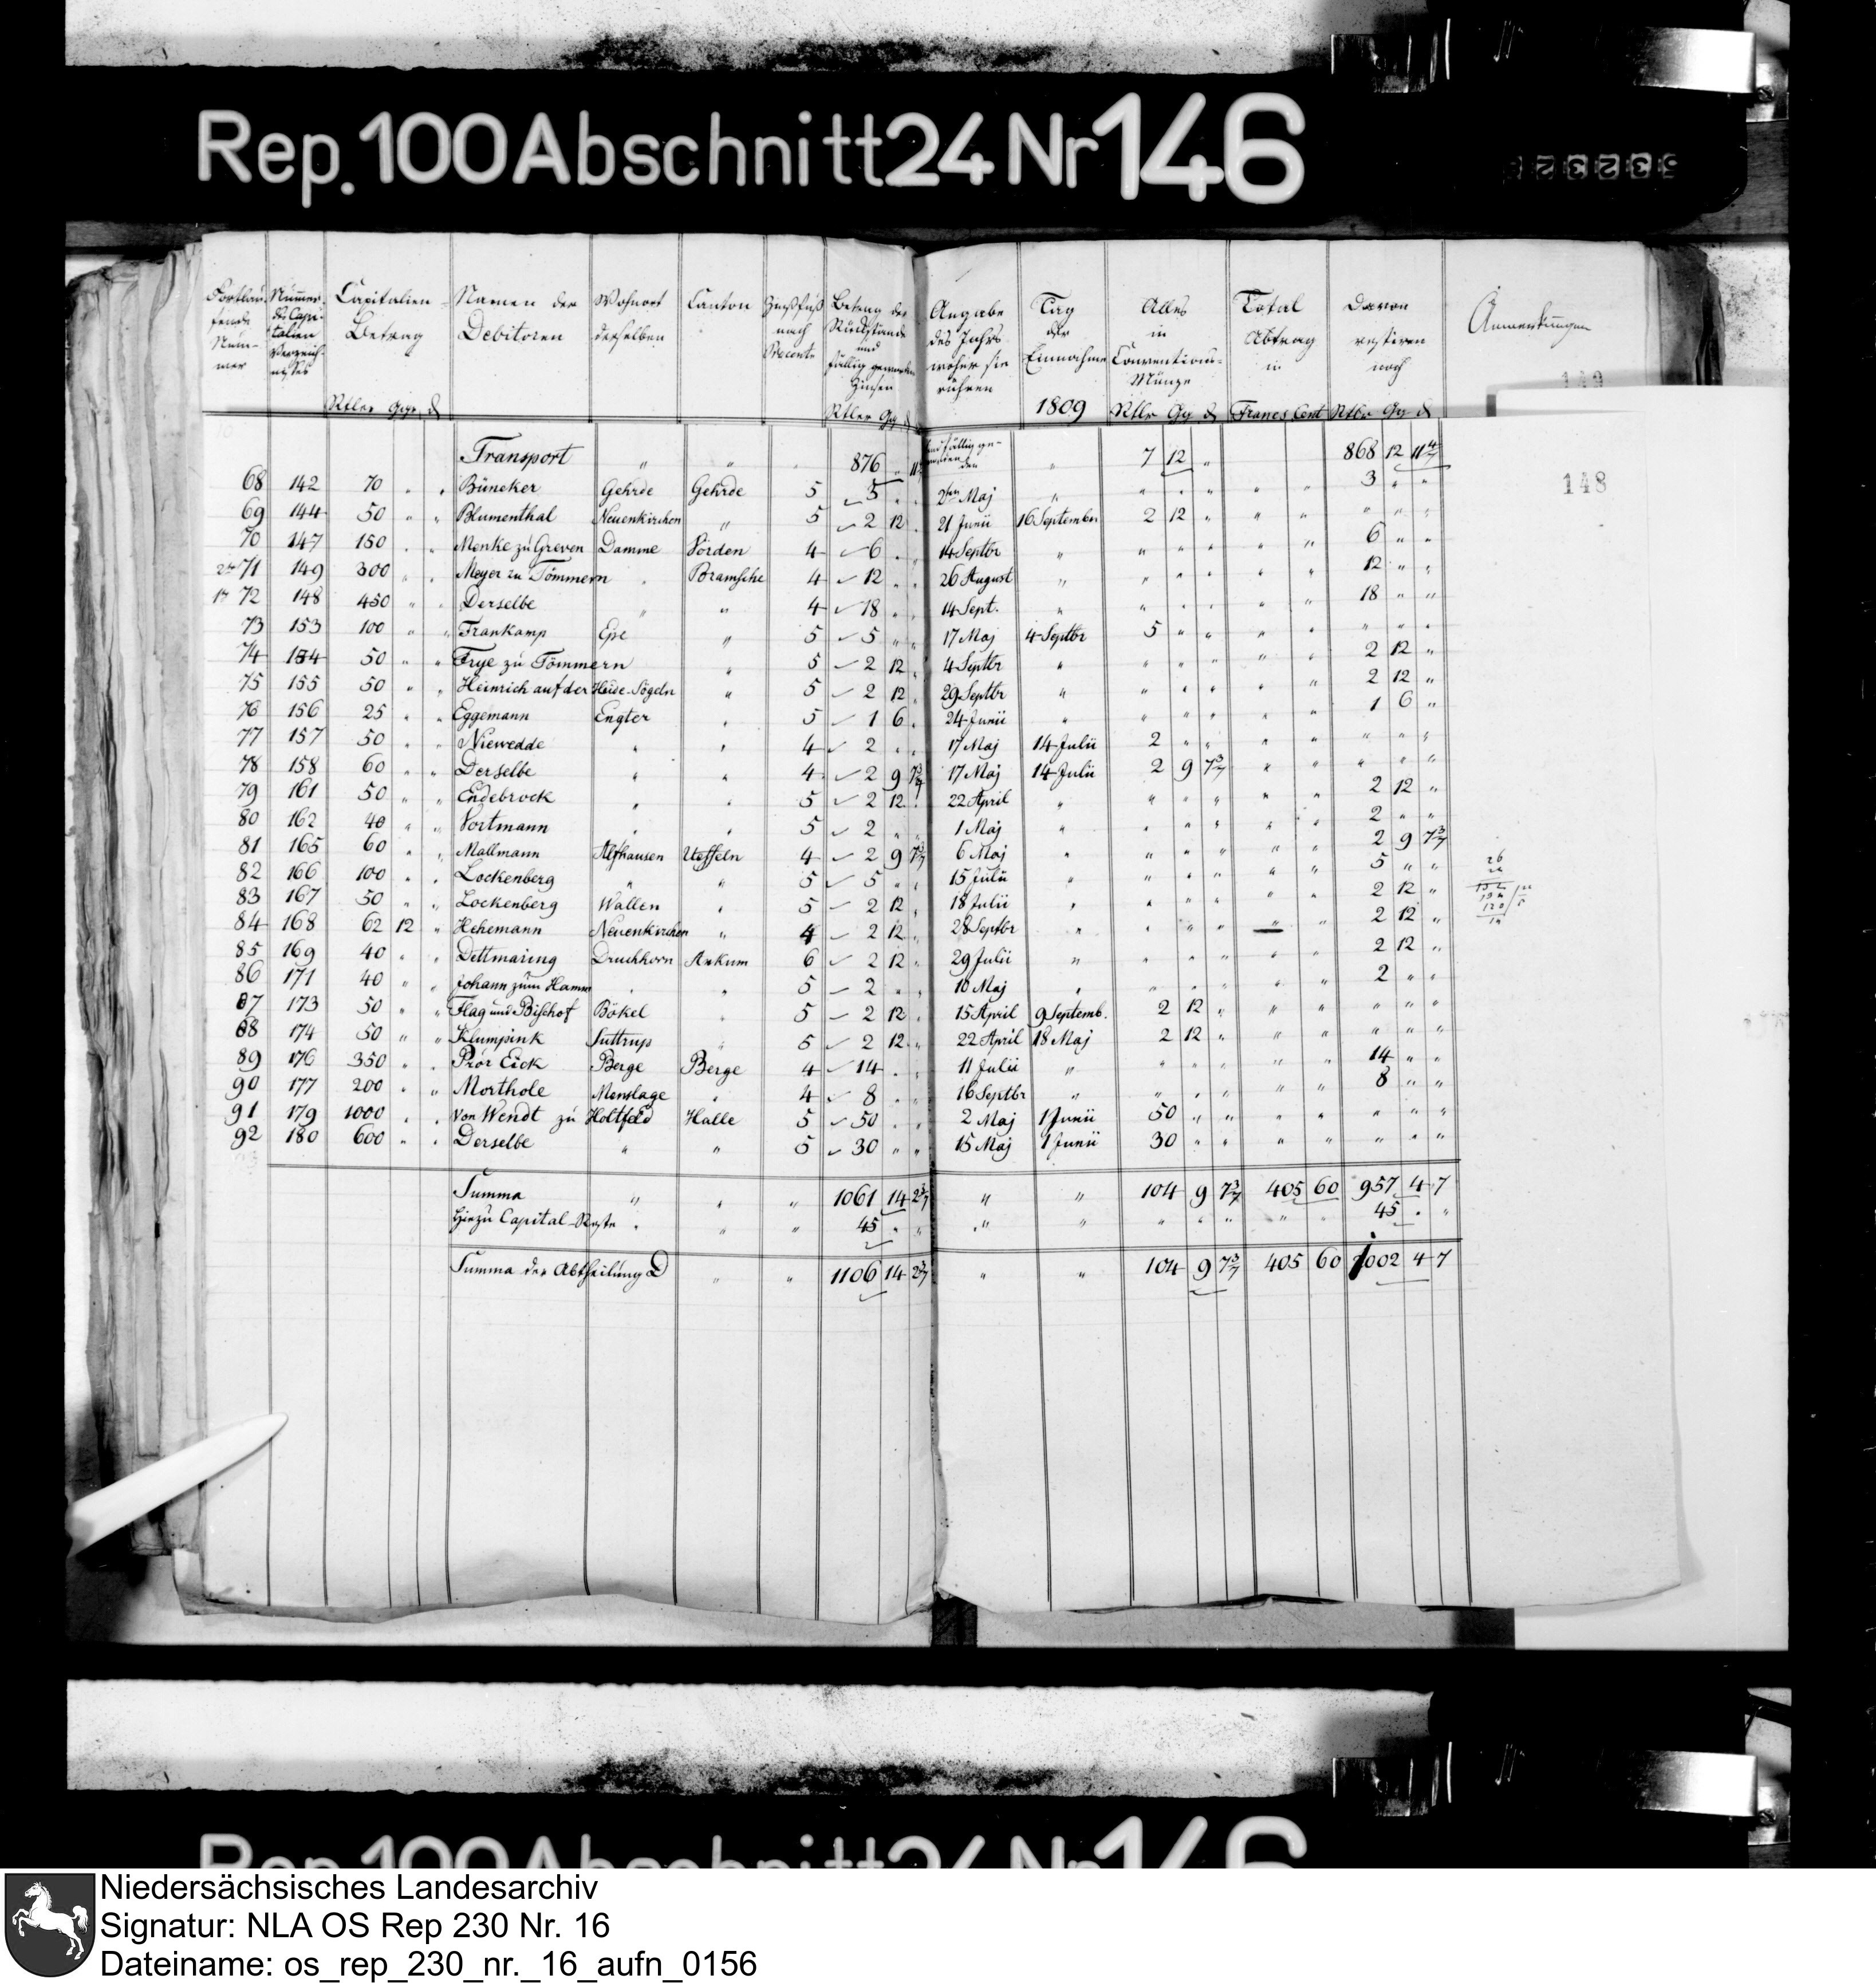 Rep. 100 Abschnitt 24 Nr 146
53232
Fortlaufende Nummer | Nummer des Capitalien Verzeichnisses | Capitalien Betrag | Namen der Debitoren | Wohnort derselben | Canton | Zinsfuß nach Procente | Betrag der Rückstände und fällig gewordenen Zinsen | Angabe des Jahrs woher sie rühren | Tag der Einnahme | Alles in Conventions-Münze | Total Abtrag in | Davon restiren noch | Anmerkungen
Rtler Ggr ₰ | Rtler Gg ₰ | 1809 | Rtlr Gg ₰ | Francs Cent | Rtlr Gg ₰
149
148
Transport " " " 876 " 11 | fällig geworden den " 7 12 " 868 12 11 4/7
68 142 70 " " Büneker Gehrde Gehrde 5 5 " " 2ten Maj " " " " " " 3 " "
69 144 50 " " Blumenthal Neuenkirchen " 5 2 12 " 21 Junii 16 September 2 12 " " " " " "
70 147 150 " " Menke zu Greven Damme Vörden 4 6 " " 14 Septbr " " " " " " 6 " "
2te 71 149 300 " " Meyer zu Tömmern " Bramsche 4 12 " " 26 August " " " " " " 12 " "
1te 72 148 450 " " Derselbe " " 4 18 " " 14 Sept. " " " " " " 18 " "
73 153 100 " " Frankamp Epe " 5 5 " " 17 Maj 4 Septbr 5 " " " " " " "
74 154 50 " " Frye zu Tömmern " 5 2 12 " 4 Septbr " " " " " " 2 12 "
75 155 50 " " Heinrich auf der Heide-Sögeln " 5 2 12 " 29 Septbr " " " " " " 2 12 "
76 156 25 " " Eggemann Engter " 5 1 6 " 24 Junii " " " " " " 1 6 "
77 157 50 " " Niewedde " " 4 2 " " 17 Maj 14 Julii 2 " " " " " " "
78 158 60 " " Derselbe " " 4 2 9 7 3/7 17 Maj 14 Julii 2 9 7 3/7 " " " " "
79 161 50 " " Endebrock " " 5 2 12 " 22 April " " " " " " 2 12 "
80 162 40 " " Vortmann " " 5 2 " " 1 Maj " " " " " " 2 " "
81 165 60 " " Mallmann Alfhausen Ueffeln 4 2 9 7 3/7 6 Maj " " " " " " 2 9 7 3/7
82 166 100 " " Lockenberg " " 5 5 " " 15 Julii " " " " " " 5 " "
83 167 50 " " Lockenberg Wallen " 5 2 12 " 18 Julii " " " " " " 2 12 "
84 168 62 12 " Hehemann Neuenkirchen " 4 2 12 " 28 Septbr " " " " " " 2 12 "
85 169 40 " " Dettmaring Druchhorn Ankum 6 2 12 " 29 Julii " " " " " " 2 12 "
86 171 40 " " Johann zum Hamm " " 5 2 " " 10 Maj " " " " " " 2 " "
87 173 50 " " Flag und Bischof Bökel " 5 2 12 " 15 April 9 Septemb. 2 12 " " " " " "
88 174 50 " " Klumpink Suttrup " 5 2 12 " 22 April 18 Maj 2 12 " " " " " "
89 176 350 " " Prör Eick Berge Berge 4 14 " " 11 Julii " " " " " " 14 " "
90 177 200 " " Morthole Menslage " 4 8 " " 16 Septbr " " " " " " 8 " "
91 179 1000 " " von Wendt zu Holtfeld Halle 5 50 " " 2 Maj 1 Junii 50 " " " " " " "
92 180 600 " " Derselbe " " 5 30 " " 15 Maj 1 Junii 30 " " " " " " "
Summa " " " 1061 14 2 3/7 " " 104 9 7 3/7 405 60 957 4 7
Hiezu Capital-Reste " " " 45 " " " " " " " " " 45 " "
Summa der Abtheilung D " " 1106 14 2 3/7 " " 104 9 7 3/7 405 60 1002 4 7
Rep. 100 Abschnitt 24 Nr 146
Niedersächsisches Landesarchiv
Signatur: NLA OS Rep 230 Nr. 16
Dateiname: os_rep_230_nr._16_aufn_0156